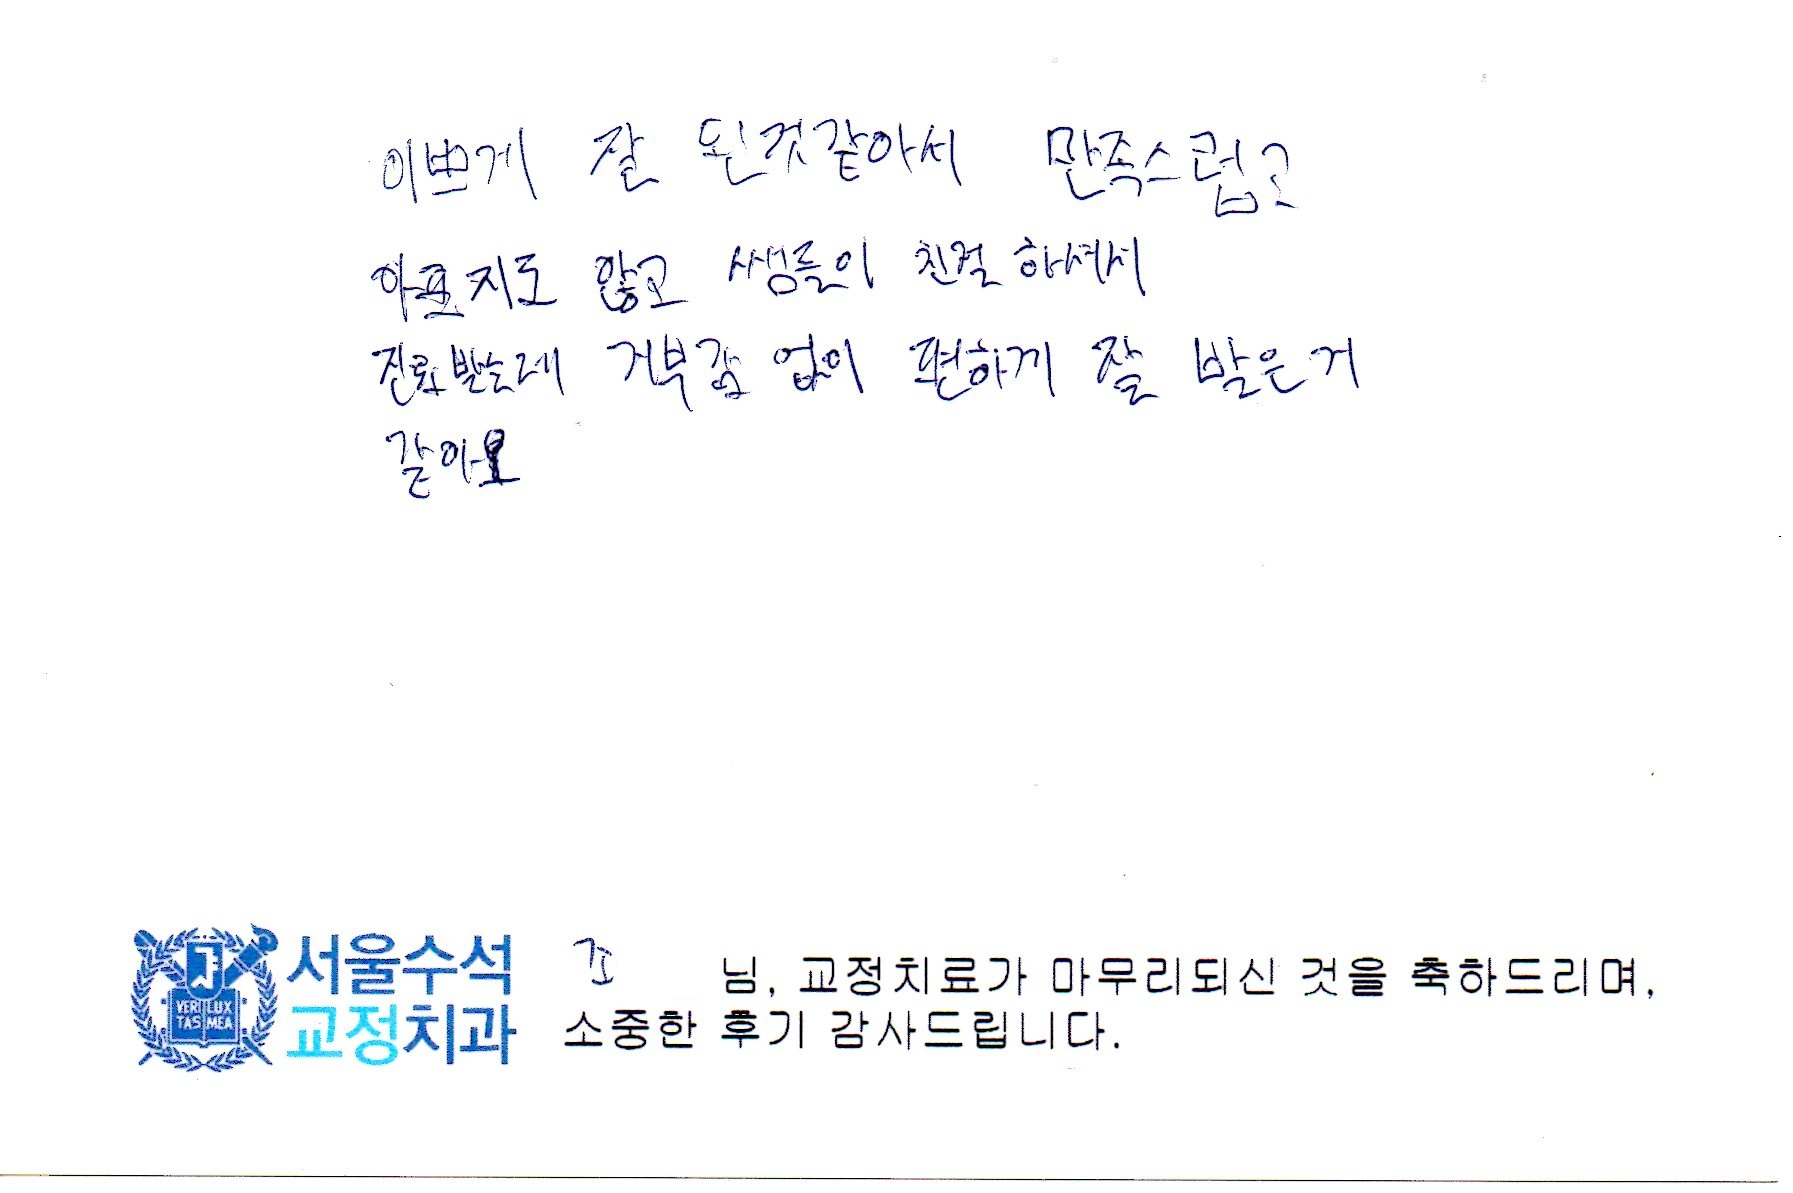 이쁘게 잘 된것같아서 만족스럽고
아프지도 않고 쌤들이 친절하셔서
진료받는데 거부감 없이 편하게 잘 받은거
같아요
VERI LUX
TAS MEA
서울수석
교정치과
조 님, 교정치료가 마무리되신 것을 축하드리며,
소중한 후기 감사드립니다.